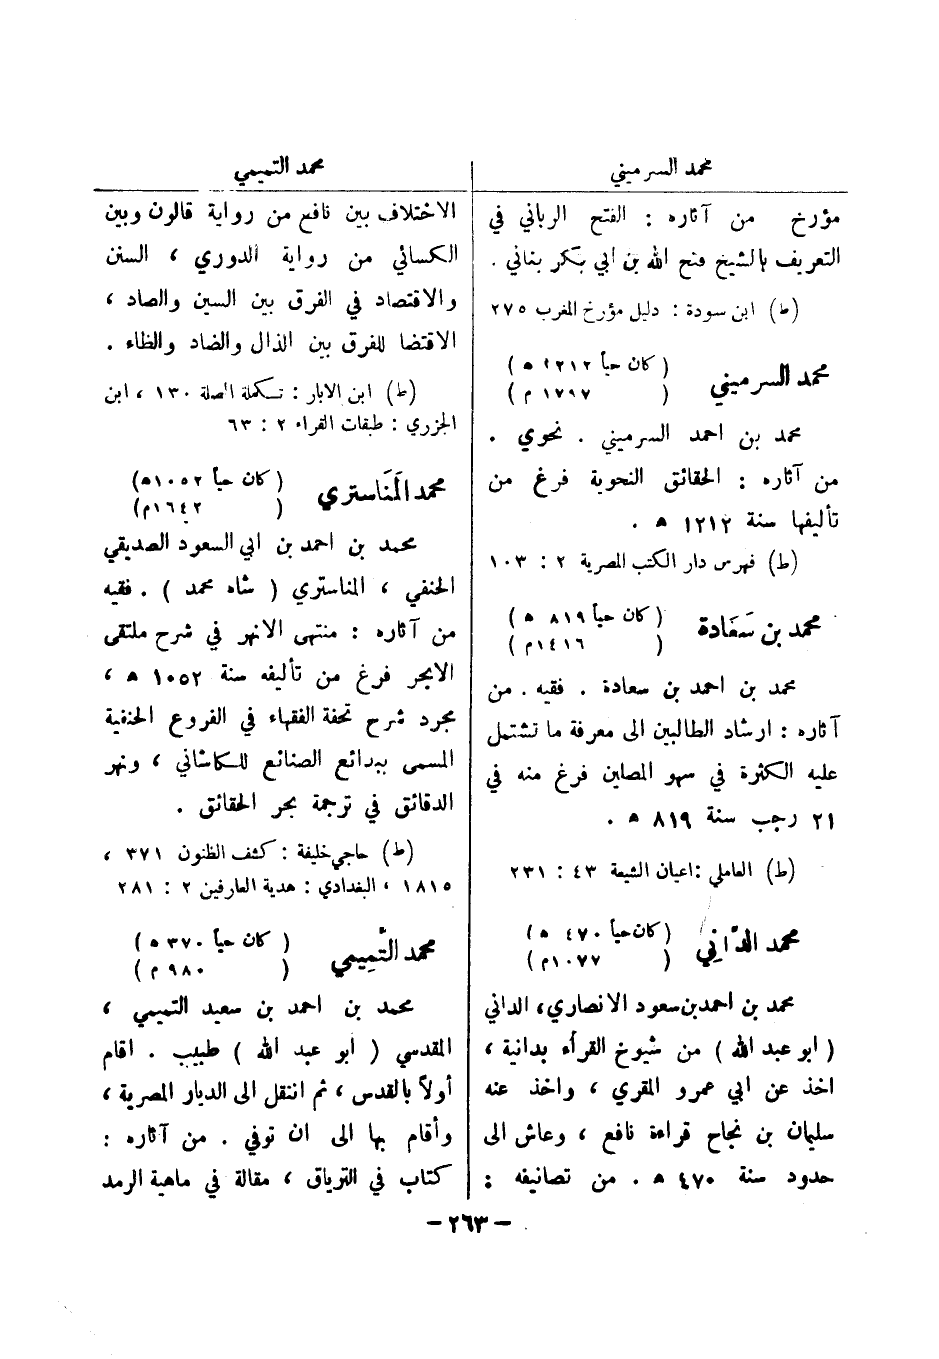 محمد السرميني
مؤرخ من آثاره : الفتح الرباني في
التعريف بالشيخ فتح الله بن أبي بكر بناني .
(ط) ابن سودة : دليل مؤرخ المغرب ٢٧٥
محمد السرميني ( كان حياً ١٢١٢ ه )
( ١٧٩٧ م )
محمد بن احمد السرميني . نحوي .
من آثاره : الحقائق النحوية فرغ من
تأليفها سنة ١٢١٢ ه .
(ط) فهرس دار الكتب المصرية ٢ : ١٠٣
محمد بن سَعَادة ( كان حياً ٨١٩ ه )
( ١٤١٦م )
محمد بن احمد بن سعادة . فقيه . من
آثاره : ارشاد الطالبين الى معرفة ما تشتمل
عليه الكثرة في سهو المصلين فرغ منه في
٢١ رجب سنة ٨١٩ ه .
(ط) العاملي : اعيان الشيعة ٤٣ : ٢٣١
محمد الدَّانِي ( كان حياً ٤٧٠ ه )
( ١٠٧٧م )
محمد بن احمد بن سعود الانصاري، الداني
( ابو عبد الله ) من شيوخ القرأء بدانية ،
اخذ عن ابي عمرو المقري ، واخذ عنه
سليمان بن نجاح قراءة نافع ، وعاش الى
حدود سنة ٤٧٠ ه . من تصانيفه :
محمد التميمي
الاختلاف بين نافع من رواية قالون وبين
الكسائي من رواية الدوري ، السنن
والاقتصاد في الفرق بين السين والصاد ،
الاقتضا للفرق بين الذال والضاد والظاء .
(ط) ابن الابار : تكملة الصلة ١٣٠ ، ابن
الجزري : طبقات القراء ٢ : ٦٣
محمد المَنَاستري ( كان حياً ١٠٥٢ه)
( ١٦٤٢م)
محمد بن احمد بن ابي السعود الصديقي
الحنفي ، المناستري ( شاه محمد ) . فقيه
من آثاره : منتهى الانهر في شرح ملتقى
الابحر فرغ من تأليفه سنة ١٠٥٢ ه ،
مجرد شرح تحفة الفقهاء في الفروع الحنفية
المسمى ببدائع الصنائع للكاشاني ، ونهر
الدقائق في ترجمة بحر الحقائق .
(ط) حاجي خليفة : كشف الظنون ٣٧١ ،
١٨١٥ ، البغدادي : هدية العارفين ٢ : ٢٨١
محمد التَّمِيمي ( كان حياً ٣٧٠ ه )
( ٩٨٠ م )
محمد بن احمد بن سعيد التميمي ،
المقدسي ( ابو عبد الله ) طبيب . اقام
أولاً بالقدس ، ثم انتقل الى الديار المصرية ،
وأقام بها الى ان توفي . من آثاره :
كتاب في الترياق ، مقالة في ماهية الرمد
– ٢٦٣ –